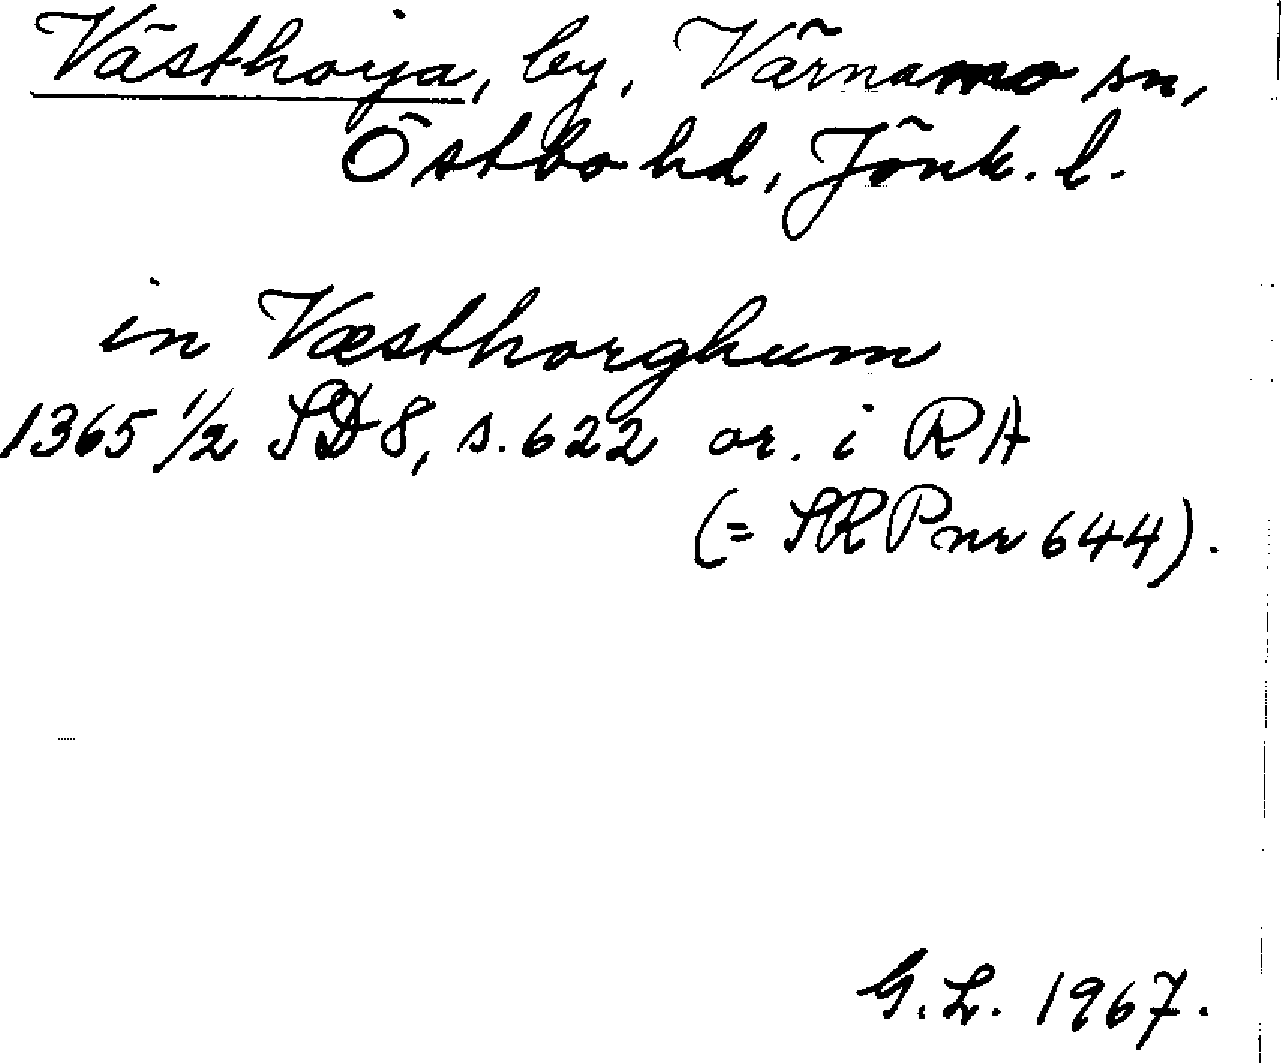 Västhorja, by, Värnamo sn,
Östbo hd, Jönk. l.
in Væsthorghum
1365 1/2 SD 8, s. 622 or. i RA
(= SRP nr 644).
G. L. 1967.